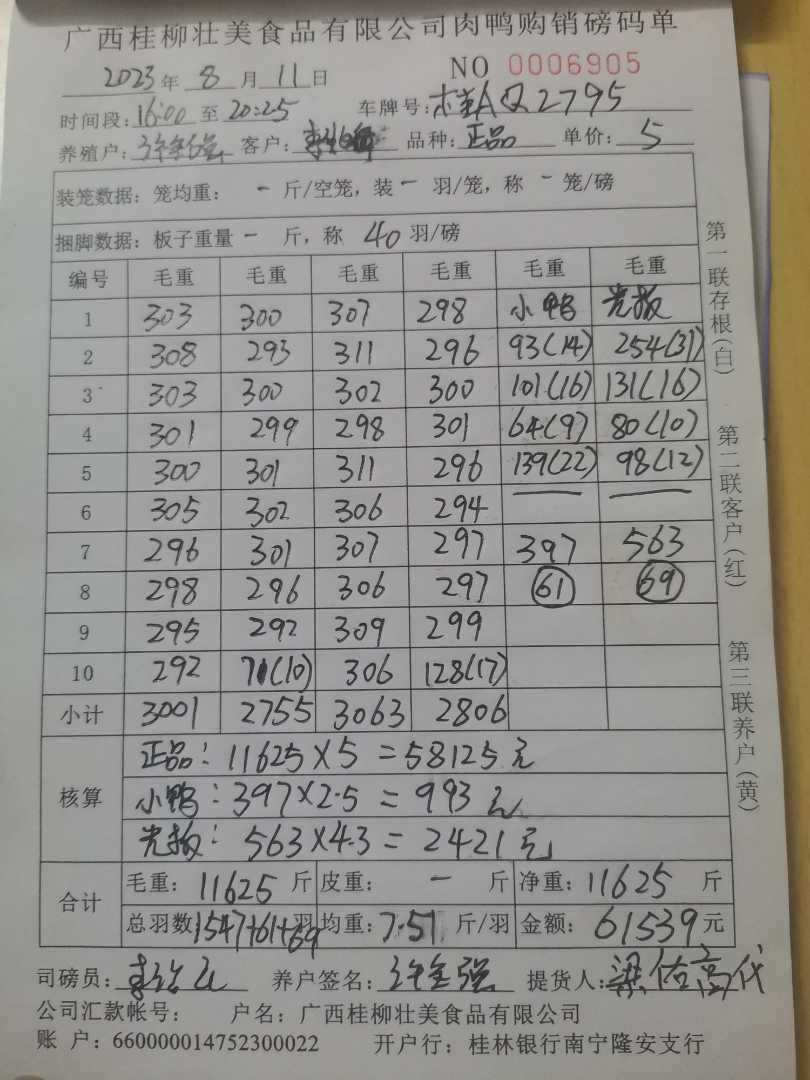 广西桂柳壮美食品有限公司肉鸭购销磅码单
2023年 8 月 11 日 NO 0006905
时间段: 16:00 至 20:25 车牌号: 桂AQ2795
养殖户: 许金强 客户: 品种: 正品 单价: 5
装笼数据: 笼均重: - 斤/空笼, 装 - 羽/笼, 称 - 笼/磅
捆脚数据: 板子重量 - 斤, 称 40 羽/磅
编号 毛重 毛重 毛重 毛重 毛重 毛重
1 303 300 307 298 小鸭 光板
2 308 293 311 296 93(14) 254(31)
3 303 300 302 300 101(16) 131(16)
4 301 299 298 301 64(9) 80(10)
5 300 301 311 296 139(22) 98(12)
6 305 302 306 294
7 296 301 307 297 397 563
8 298 296 306 297 61 69
9 295 292 309 299
10 292 71(10) 306 128(17)
小计 3001 2755 3063 2806
核算
正品: 11625×5=58125元
小鸭: 397×2.5=993元
光板: 563×4.3=2421元
合计
毛重: 11625 斤 皮重: - 斤 净重: 11625 斤
总羽数1547+61+69羽 均重: 7.51 斤/羽 金额: 61539元
司磅员: 养户签名: 许金强 提货人:
公司汇款帐号: 户名: 广西桂柳壮美食品有限公司
账 户: 660000014752300022 开户行: 桂林银行南宁隆安支行
第一联存根(白)
第二联客户(红)
第三联养户(黄)